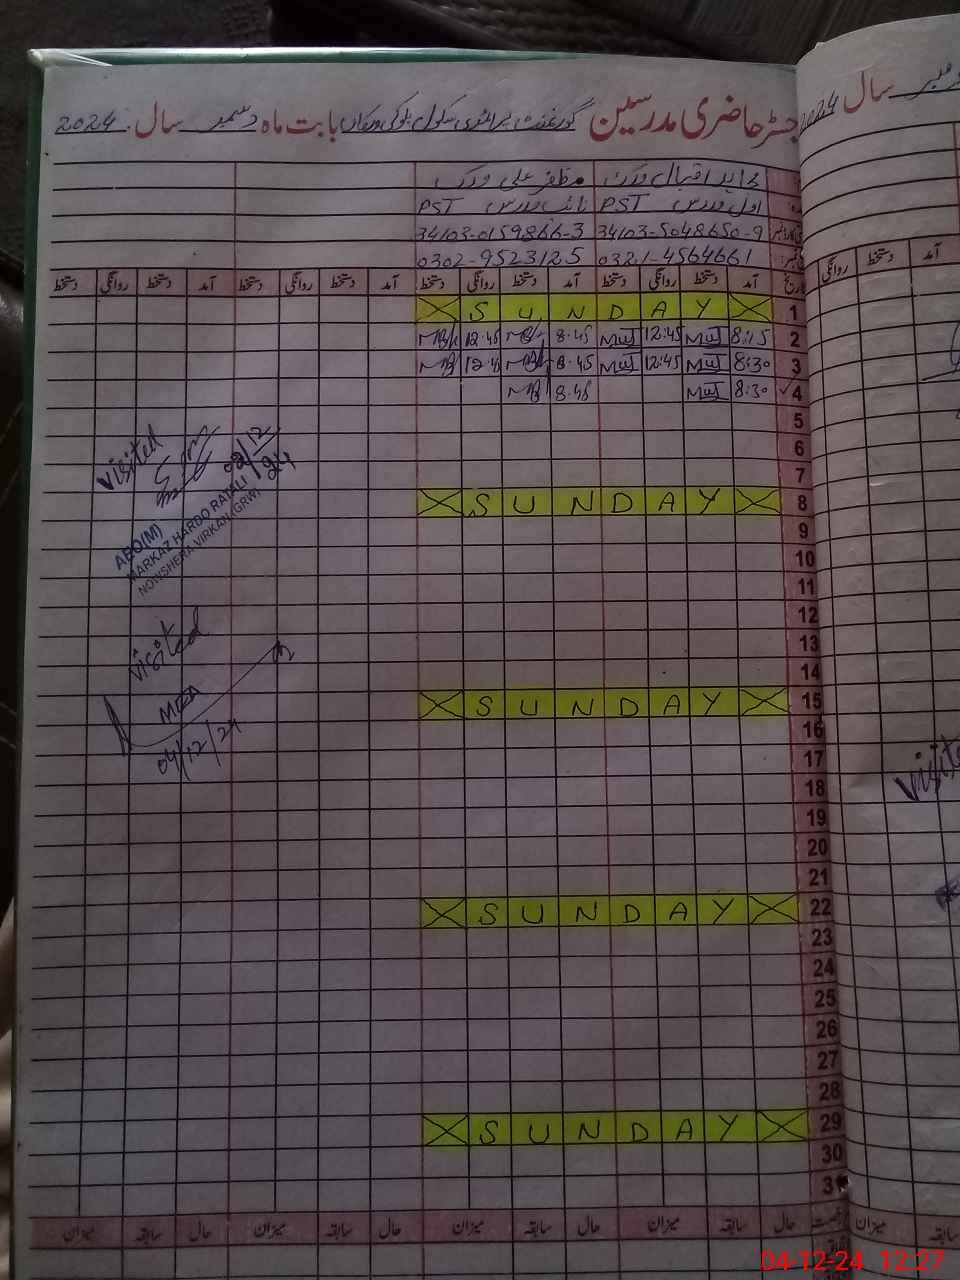 رجسٹر حاضری مدرسین گورنمنٹ پرائمری سکول بابت ماہ دسمبر سال 2024
سال 2024
جاوید اقبال ورک مظفر علی ورک
اول مدرس PST نائب مدرس PST
34103-5048650-9 34103-0159866-3
0321-4564661 0302-9523125
آمد دستخط روانگی دستخط آمد دستخط روانگی دستخط آمد دستخط روانگی دستخط آمد دستخط روانگی دستخط
آمد دستخط روانگی
1 SUNDAY
2 8:15 MWJ 12:45 MWJ 8.45 12.45
3 8:30 MWJ 12:45 MWJ 8.45 12.4
4 8:30 MWJ 8.45
5
6
7
8 SUNDAY
9
10
11
12
13
14
15 SUNDAY
16
17
18
19
20
21
22 SUNDAY
23
24
25
26
27
28
29 SUNDAY
30
31
حال سابقہ میزان حال سابقہ میزان حال سابقہ میزان حال سابقہ میزان
میزان سابقہ
Visited
02/12/24
AEO(M)
MARKAZ HARDO RATALI
NOWSHERA VIRKAN (GRW)
Visited
MEA
04/12/24
Visite
04-12-24 12:27